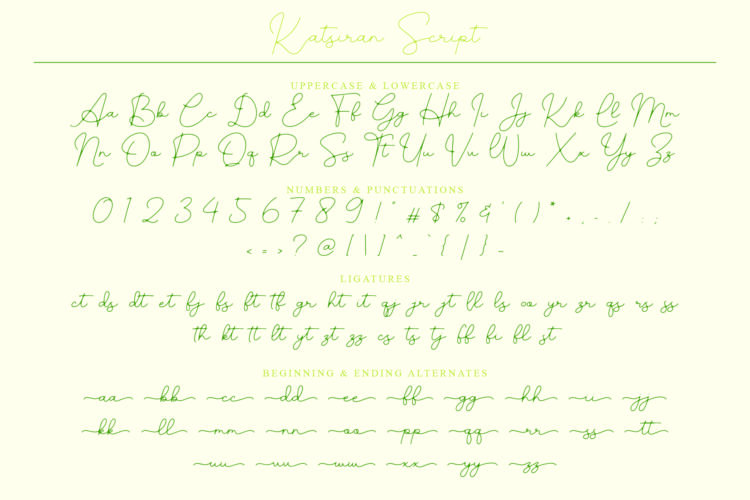 Katsiran Script
UPPERCASE & LOWERCASE
Aa Bb Cc Dd Ee Ff Gg Hh Ii Jj Kk Ll Mm
Nn Oo Pp Qq Rr Ss Tt Uu Vv Ww Xx Yy Zz
NUMBERS & PUNCTUATIONS
0 1 2 3 4 5 6 7 8 9 ! " # $ % & ' ( ) * + , - . / : ;
< = > ? @ [ \ ] ^ _ ` { | } ~
LIGATURES
ct ds dt et fj fs ft tf gr ht it qj jr jt ll ls oo yr zr qs rs ss
th kt tt lt yt zt zz cs ts tj ff fi fl st
BEGINNING & ENDING ALTERNATES
aa bb cc dd ee ff gg hh ii jj
kk ll mm nn oo pp qq rr ss tt
uu vv ww xx yy zz